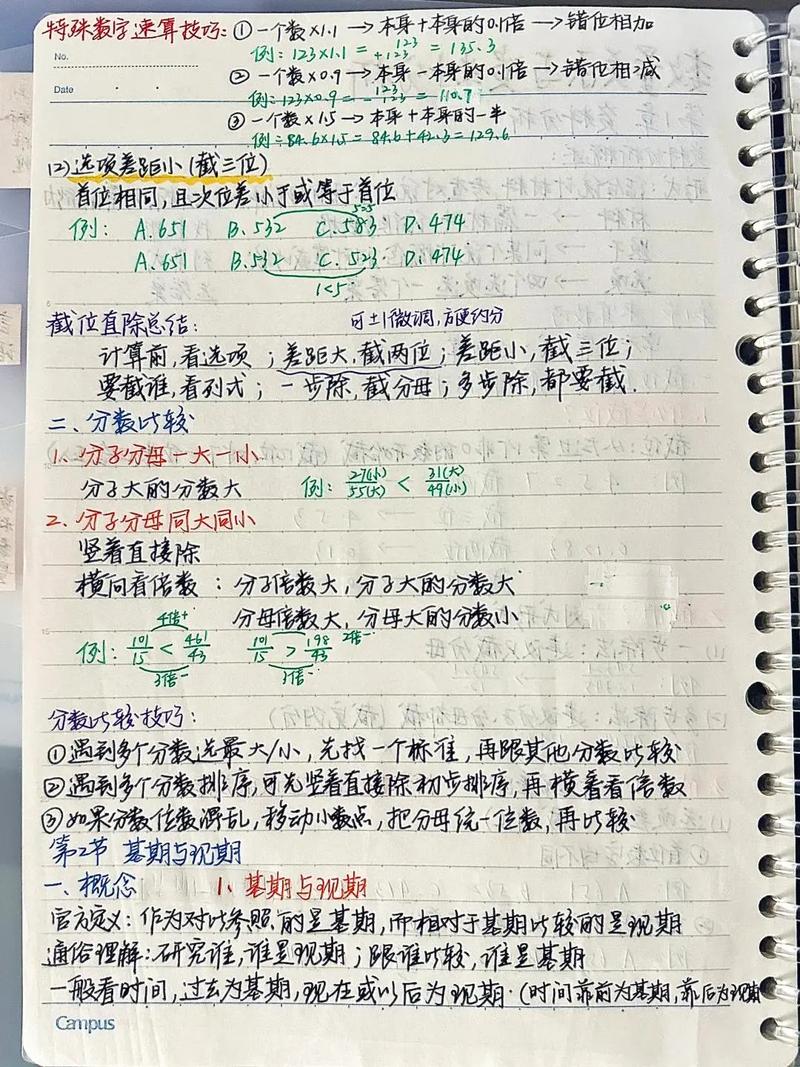 特殊数字速算技巧：① 一个数×1.1 → 本身+本身的0.1倍 → 错位相加
No.
例：123×1.1 = 123 +123 = 135.3
② 一个数×0.9 → 本身-本身的0.1倍 → 错位相减
Date
例：123×0.9 = 123 -123 = 110.7
③ 一个数×1.5 → 本身+本身的一半
例：84.6×1.5 = 84.6+42.3 = 126.9
(2) 选项差距小(截三位)
首位相同，且次位差小于或等于首位
例： A.651 B.532 C.583 D.474
A.651 B.532 C.523 D.474
1<5
截位直除总结：
可±1微调，方便约分
计算前，看选项；差距大，截两位；差距小，截三位；
要截谁，看列式；一步除，截分母；多步除，都要截.
二、分数比较
1、分子分母一大一小
分子大的分数大 例：27(小)/55(大) < 31(大)/49(小)
2、分子分母同大同小
竖着直接除
横向看倍数：分子倍数大，分子大的分数大
分母倍数大，分母大的分数小
4倍+
例：101/15 < 461/43 101/15 > 198/43 2倍-
3倍- 3倍-
分数比较技巧：
①遇到多个分数选最大/小，先找一个标准，再跟其他分数比较
②遇到多个分数排序，可先竖着直接除初步排序，再横着看倍数
③如果分数位数混乱，移动小数点，把分母统一位数，再比较
第2节 基期与现期
一、概念 1、基期与现期
官方定义：作为对比参照的是基期，而相对于基期比较的是现期
通俗理解：研究谁，谁是现期；跟谁比较，谁是基期
一般看时间，过去为基期，现在或以后为现期.(时间靠前为基期，靠后为现期
Campus